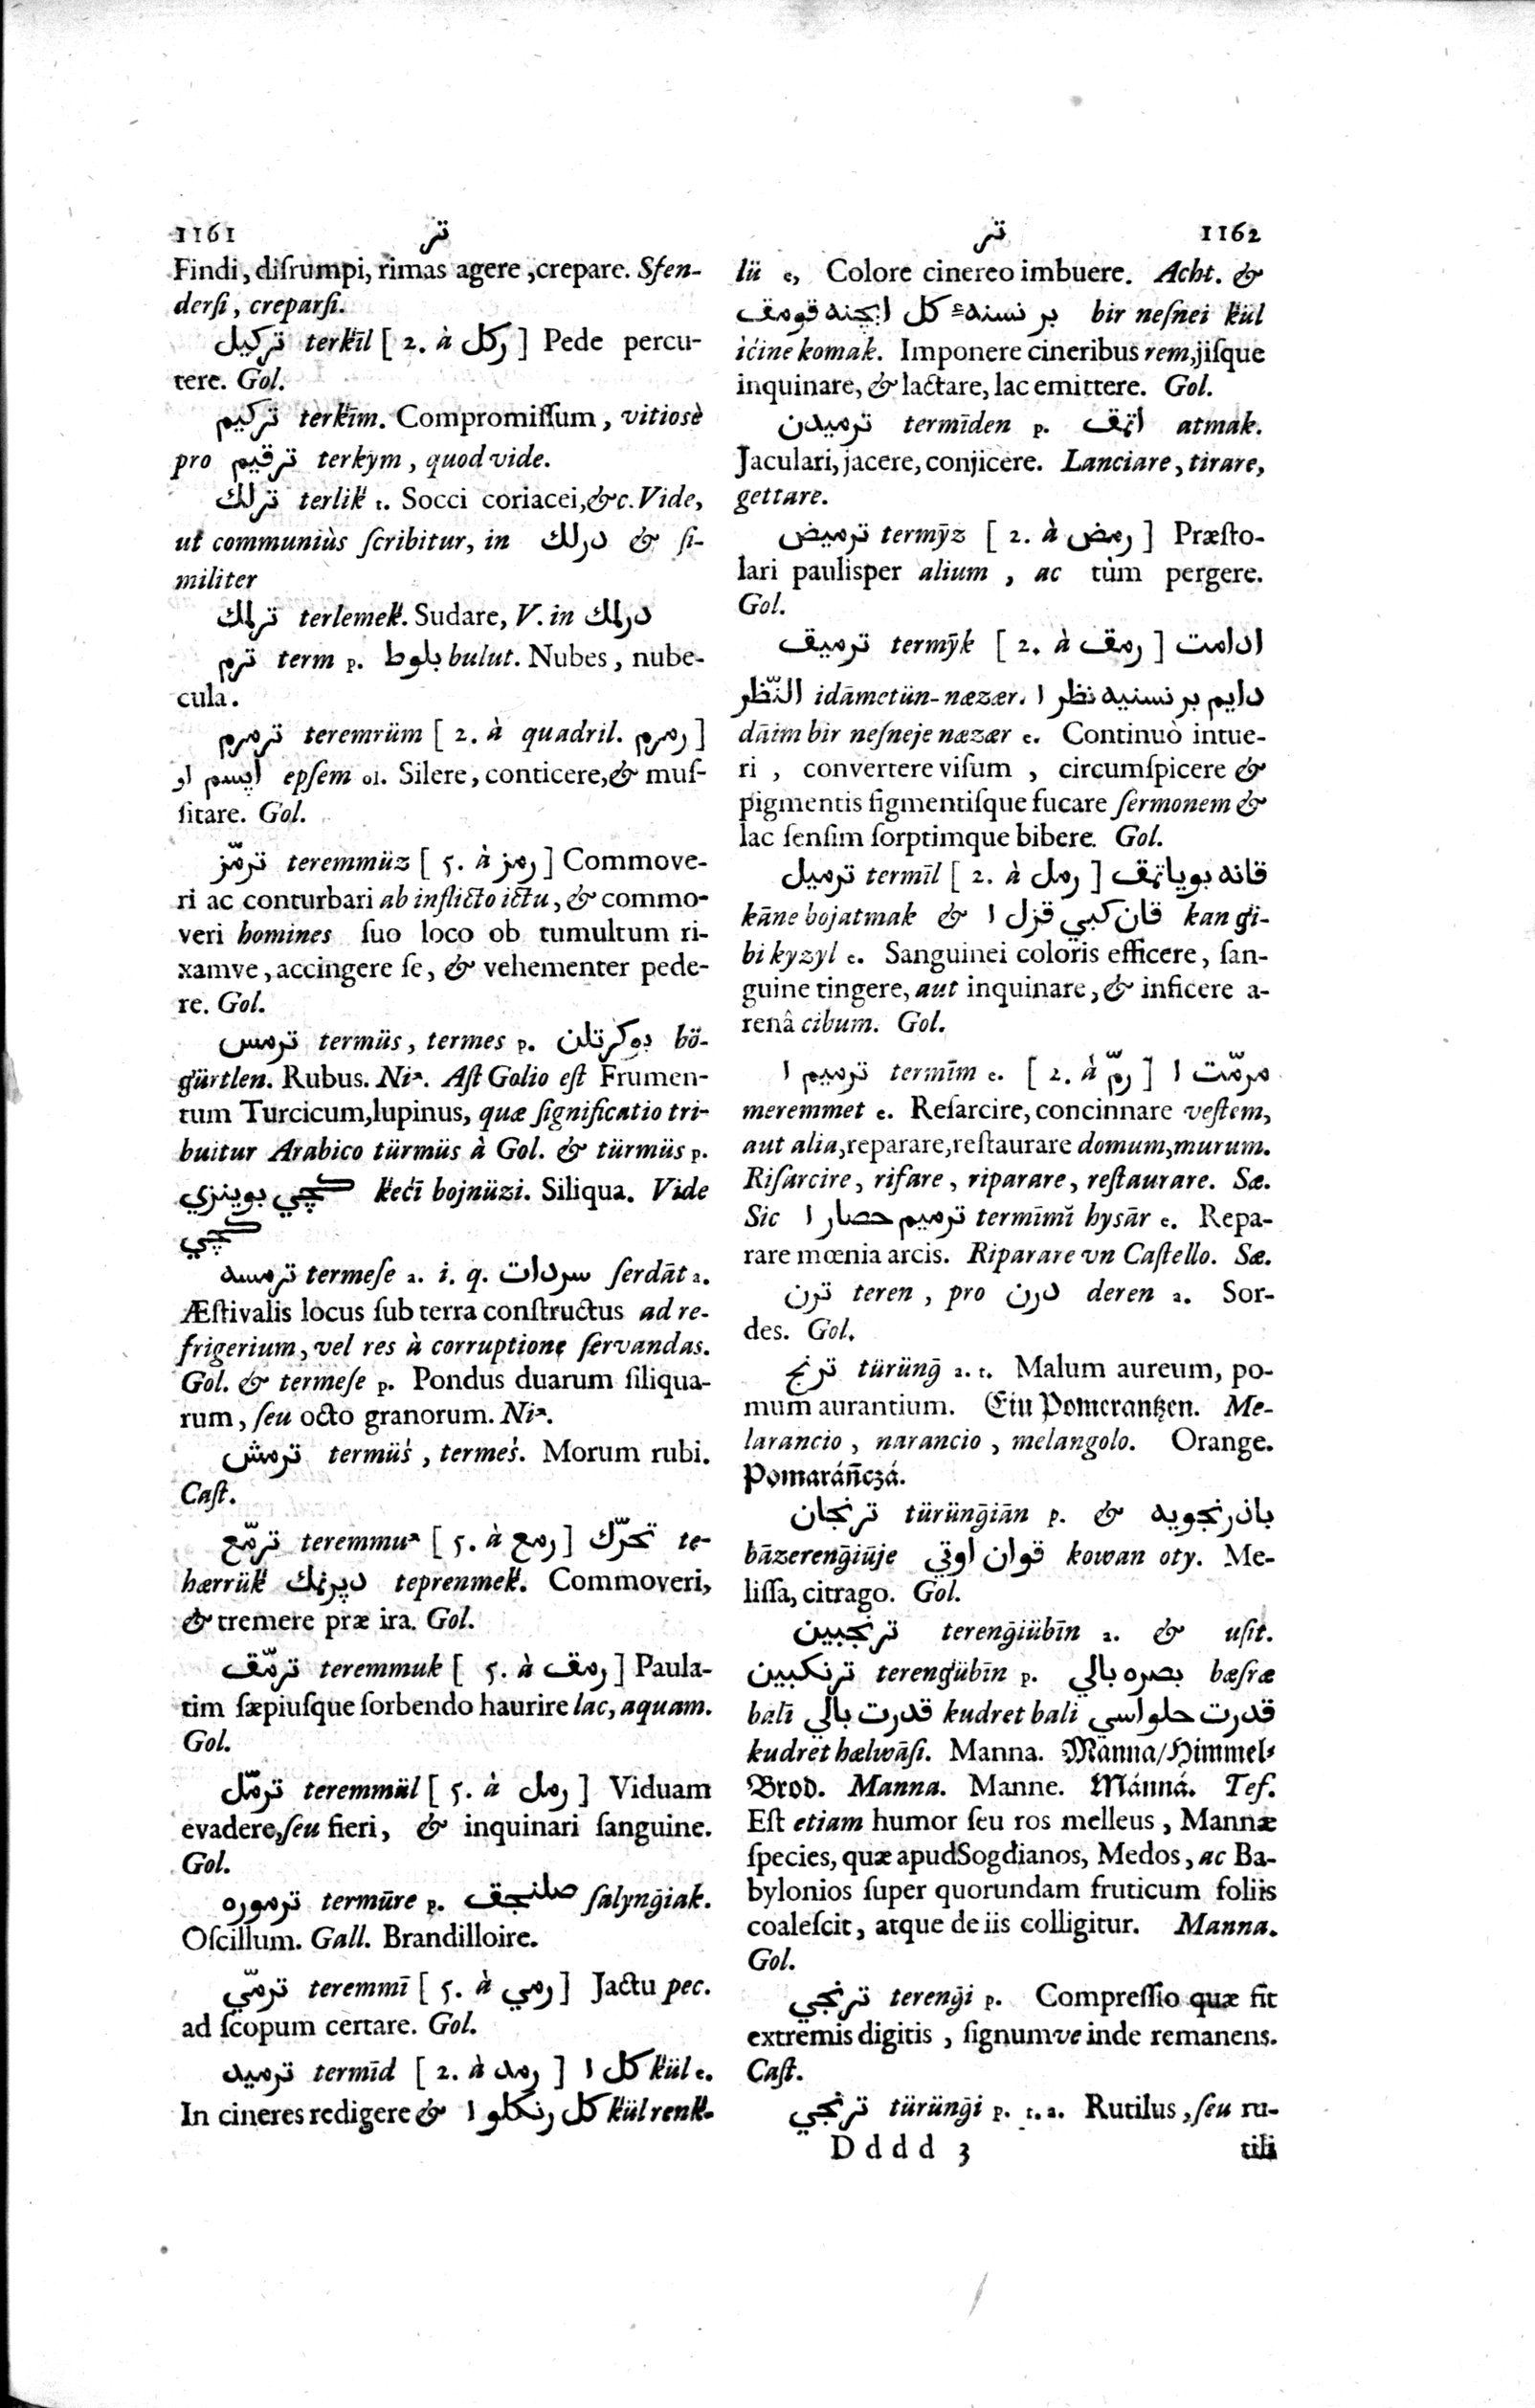 1161 تر
Findi, diſrumpi, rimas agere, crepare. Sfen-
derſi, creparſi.
تركيل terkīl [ 2. à ركل ] Pede percu-
tere. Gol.
تركيم terkīm. Compromiſſum, vitiosè
pro ترقيم terkym, quod vide.
ترلك terlik t. Socci coriacei, &c. Vide,
ut communiùs ſcribitur, in درلك & ſi-
militer
ترلمك terlemek. Sudare, V. in درلمك
ترم term p. بلوط bulut. Nubes, nube-
cula.
ترمرم teremrüm [ 2. à quadril. رمرم ]
اپسم او epſem ol. Silere, conticere, & muſ-
ſitare. Gol.
ترمّز teremmüz [ 5. à رمز ] Commove-
ri ac conturbari ab inflicto ictu, & commo-
veri homines ſuo loco ob tumultum ri-
xamve, accingere ſe, & vehementer pede-
re. Gol.
ترمس termüs, termes p. بوكرتلن bö-
gürtlen. Rubus. Niᵃ. Aſt Golio eſt Frumen-
tum Turcicum, lupinus, quæ ſignificatio tri-
buitur Arabico türmüs à Gol. & türmüs p.
كچي بوينزي kećī bojnüzi. Siliqua. Vide
كچي
ترمسه termeſe a. i. q. سردات ſerdāt a.
Æſtivalis locus ſub terra conſtructus ad re-
frigerium, vel res à corruptione ſervandas.
Gol. & termeſe p. Pondus duarum ſiliqua-
rum, ſeu octo granorum. Niᵃ.
ترمش termüṡ, termeṡ. Morum rubi.
Caſt.
ترمّع teremmuᵃ [ 5. à رمع ] تحرّك te-
hærrük دپرنمك teprenmek. Commoveri,
& tremere præ ira. Gol.
ترمّق teremmuk [ 5. à رمق ] Paula-
tim ſæpiuſque ſorbendo haurire lac, aquam.
Gol.
ترمّل teremmül [ 5. à رمل ] Viduam
evadere, ſeu fieri, & inquinari ſanguine.
Gol.
ترموره termūre p. صلنجق ſalynǵiak.
Oſcillum. Gall. Brandilloire.
ترمّي teremmī [ 5. à رمي ] Jactu pec.
ad ſcopum certare. Gol.
ترميد termīd [ 2. à رمد ] كل ا kül e.
In cineres redigere & كل رنكلو ا kül renk-
تر 1162
lü e, Colore cinereo imbuere. Acht. &
بر نسنهء كل ايچنه قومق bir neſnei kül
ićine komak. Imponere cineribus rem, jiſque
inquinare, & lactare, lac emittere. Gol.
ترميدن termīden p. اتمق atmak.
Jaculari, jacere, conjicere. Lanciare, tirare,
gettare.
ترميض termȳz [ 2. à رمض ] Præſto-
lari pauliſper alium, ac tùm pergere.
Gol.
ترميق termȳk [ 2. à رمق ] ادامت
النّظر idāmetün-næzær. دايم بر نسنيه نظر ا
dāim bir neſneje næzær e. Continuò intue-
ri, convertere viſum, circumſpicere &
pigmentis figmentiſque fucare ſermonem &
lac ſenſim ſorptimque bibere. Gol.
ترميل termīl [ 2. à رمل ] قانه بوياتمق
kāne bojatmak & قان كبي قزل ا kan gi-
bi kyzyl e. Sanguinei coloris efficere, ſan-
guine tingere, aut inquinare, & inficere a-
renâ cibum. Gol.
ترميم ا termīm e. [ 2. à رمّ ] مرمّت ا
meremmet e. Reſarcire, concinnare veſtem,
aut alia, reparare, reſtaurare domum, murum.
Riſarcire, rifare, riparare, reſtaurare. Sæ.
Sic ترميم حصار ا termīmi hysār e. Repa-
rare mœnia arcis. Riparare vn Caſtello. Sæ.
ترن teren, pro درن deren a. Sor-
des. Gol.
ترنج türünḡ a. t. Malum aureum, po-
mum aurantium. Ein Pomerantzen. Me-
larancio, narancio, melangolo. Orange.
Pomaráñczá.
ترنجان türünḡiān p. & باذرنجويه
bāzerenḡiūje قوان اوتي kowan oty. Me-
liſſa, citrago. Gol.
ترنجبين terenḡiübīn a. & uſit.
ترنكبين terengübīn p. بصره بالي bæſræ
balī قدرت بالي kudret bali قدرت حلواسي
kudret hælwāſi. Manna. Manna/Himmel-
Brod. Manna. Manne. Mánná. Teſ.
Eſt etiam humor ſeu ros melleus, Mannæ
ſpecies, quæ apud Sogdianos, Medos, ac Ba-
bylonios ſuper quorundam fruticum foliis
coaleſcit, atque de iis colligitur. Manna.
Gol.
ترنجي terenḡi p. Compreſſio quæ fit
extremis digitis, ſignumve inde remanens.
Caſt.
ترنجي türünḡi p. t. a. Rutilus, ſeu ru-
D d d d 3 tili